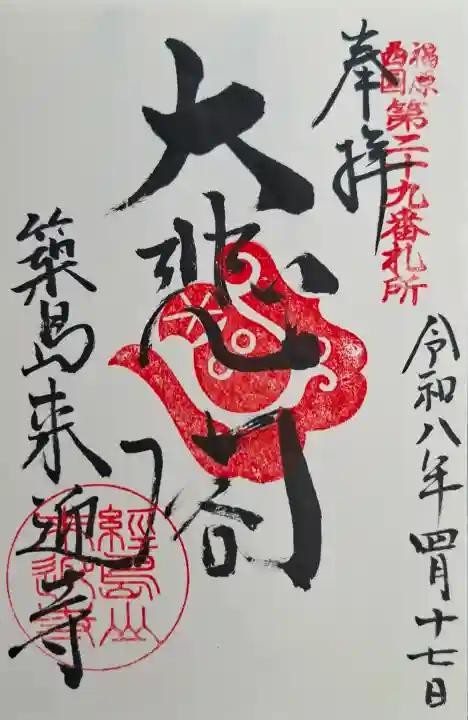 福原
西国
第二十九番札所
奉拝
令和八年四月十七日
大悲閣
築島来迎寺
経島山
来迎寺